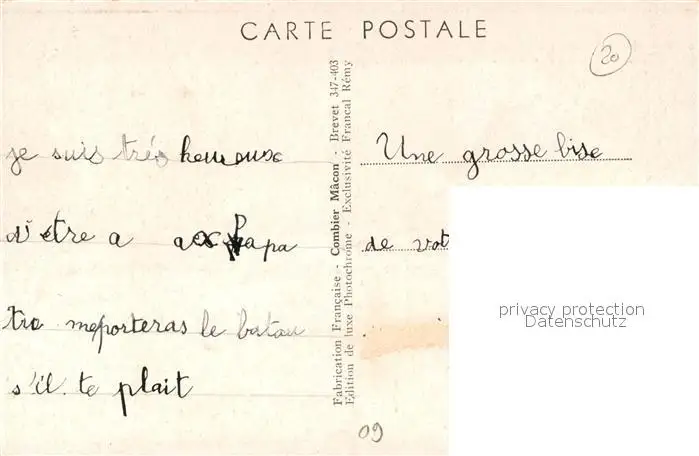 CARTE POSTALE
20
je suis très heureux
d'être a papa
tu meporteras le batau
s'il te plait
Fabrication Française - Combier Mâcon - Brevet 347-403
Edition de luxe Photochrome - Exclusivité Francal Rémy
Une grosse bise
de vot
privacy protection
Datenschutz
09